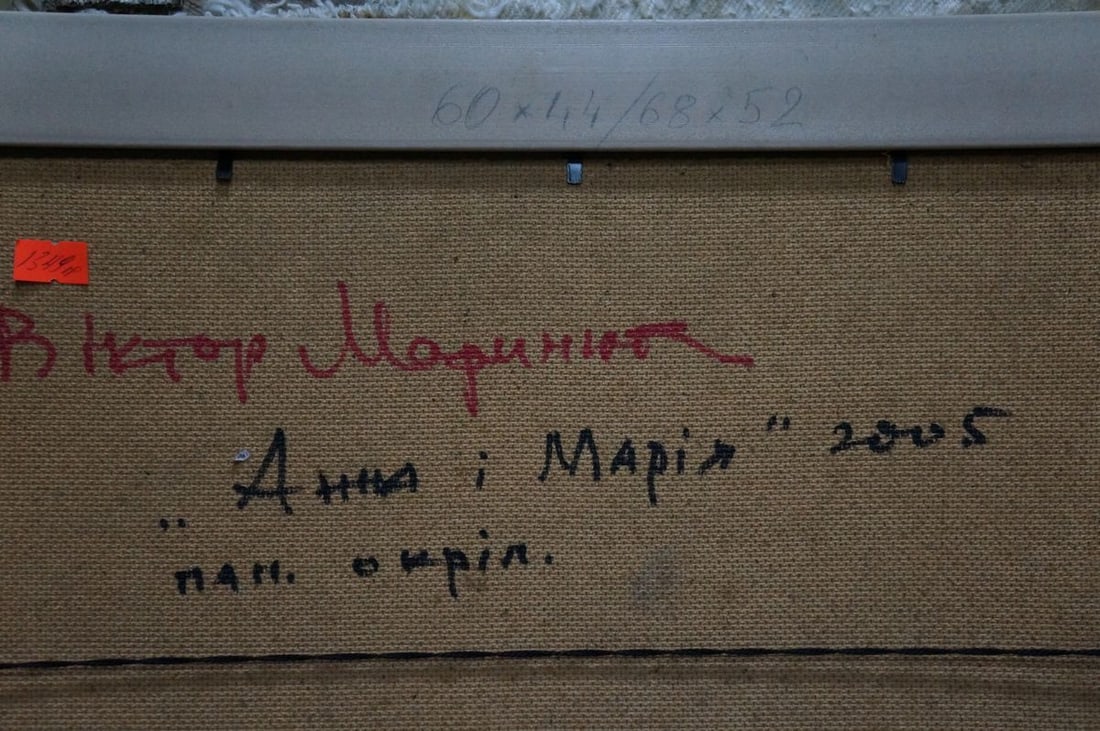 60 x 44/68 x 52
Віктор Маринюк
„Анна і Марія" 2005
пап. акріл.